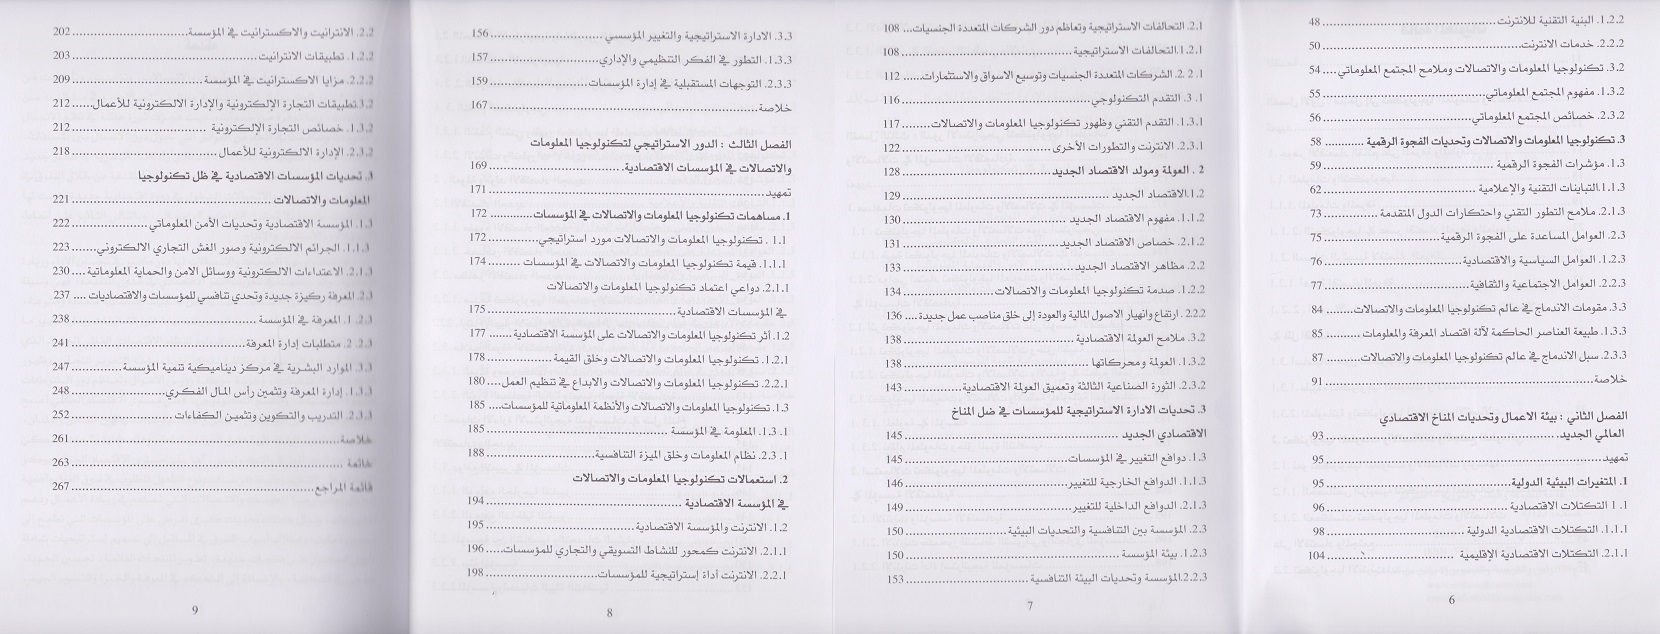 1.2.2. البنية التقنية للانترنت 48
2.2.2. خدمات الانترنت 50
3.2. تكنولوجيا المعلومات والاتصالات وملامح المجتمع المعلوماتي 54
1.3.2. مفهوم المجتمع المعلوماتي 55
2.3.2. خصائص المجتمع المعلوماتي 56
3. تكنولوجيا المعلومات والاتصالات وتحديات الفجوة الرقمية 58
1.3. مؤشرات الفجوة الرقمية 59
1.1.3. التباينات التقنية والإعلامية 62
2.1.3. ملامح التطور التقني واحتكارات الدول المتقدمة 73
2.3. العوامل المساعدة على الفجوة الرقمية 75
1.2.3. العوامل السياسية والاقتصادية 76
2.2.3. العوامل الاجتماعية والثقافية 77
3.3. مقومات الاندماج في عالم تكنولوجيا المعلومات والاتصالات 84
1.3.3. طبيعة العناصر الحاكمة لآلة اقتصاد المعرفة والمعلومات 85
2.3.3. سبل الاندماج في عالم تكنولوجيا المعلومات والاتصالات 87
خلاصة 91
الفصل الثاني : بيئة الاعمال وتحديات المناخ الاقتصادي
العالمي الجديد 93
تمهيد 95
1. المتغيرات البيئية الدولية 95
1.1 التكتلات الاقتصادية 96
1.1.1. التكتلات الاقتصادية الدولية 98
2.1.1. التكتلات الاقتصادية الإقليمية 104
6
2.1. التحالفات الاستراتيجية وتعاظم دور الشركات المتعددة الجنسيات 108
1.2.1. التحالفات الاستراتيجية 108
2.2.1. الشركات المتعددة الجنسيات وتوسيع الاسواق والاستثمارات 112
3.1. التقدم التكنولوجي 116
1.3.1. التقدم التقني وظهور تكنولوجيا المعلومات والاتصالات 117
2.3.1. الانترنت والتطورات الأخرى 122
2. العولمة ومولد الاقتصاد الجديد 128
1.2. الاقتصاد الجديد 129
1.1.2. مفهوم الاقتصاد الجديد 130
2.1.2. خصاص الاقتصاد الجديد 131
2.2. مظاهر الاقتصاد الجديد 133
1.2.2. صدمة تكنولوجيا المعلومات والاتصالات 134
2.2.2. ارتفاع وانهيار الاصول المالية والعودة إلى خلق مناصب عمل جديدة 136
3.2. ملامح العولمة الاقتصادية 138
1.3.2. العولمة ومحركاتها 138
2.3.2. الثورة الصناعية الثالثة وتعميق العولمة الاقتصادية 143
3. تحديات الادارة الاستراتيجية للمؤسسات في ضل المناخ
الاقتصادي الجديد 145
1.3. دوافع التغيير في المؤسسات 145
1.1.3. الدوافع الخارجية للتغيير 146
2.1.3. الدوافع الداخلية للتغيير 149
2.3. المؤسسة بين التنافسية والتحديات البيئية 150
1.2.3. بيئة المؤسسة 150
2.2.3. المؤسسة وتحديات البيئة التنافسية 153
7
3.3. الادارة الاستراتيجية والتغيير المؤسسي 156
1.3.3. التطور في الفكر التنظيمي والإداري 157
2.3.3. التوجهات المستقبلية في إدارة المؤسسات 159
خلاصة 167
الفصل الثالث : الدور الاستراتيجي لتكنولوجيا المعلومات
والاتصالات في المؤسسات الاقتصادية 169
تمهيد 171
1. مساهمات تكنولوجيا المعلومات والاتصالات في المؤسسات 172
1.1. تكنولوجيا المعلومات والاتصالات مورد استراتيجي 172
1.1.1. قيمة تكنولوجيا المعلومات والاتصالات في المؤسسات 174
2.1.1. دواعي اعتماد تكنولوجيا المعلومات والاتصالات
في المؤسسات الاقتصادية 175
2.1. أثر تكنولوجيا المعلومات والاتصالات على المؤسسة الاقتصادية 177
1.2.1. تكنولوجيا المعلومات والاتصالات وخلق القيمة 178
2.2.1. تكنولوجيا المعلومات والاتصالات والابداع في تنظيم العمل 180
3.1. تكنولوجيا المعلومات والاتصالات والأنظمة المعلوماتية للمؤسسات 185
1.3.1. المعلومة في المؤسسة 185
2.3.1. نظام المعلومات وخلق الميزة التنافسية 188
2. استعمالات تكنولوجيا المعلومات والاتصالات
في المؤسسة الاقتصادية 194
1.2. الانترنت والمؤسسة الاقتصادية 195
2.1.1. الانترنت كمحور للنشاط التسويقي والتجاري للمؤسسات 196
2.2.1. الانترنت أداة إستراتيجية للمؤسسات 198
8
2.2. الانترانيت والاكسترانيت في المؤسسة 202
1.2.2. تطبيقات الانترانيت 203
2.2.2. مزايا الاكسترانيت في المؤسسة 209
3.2. تطبيقات التجارة الإلكترونية والإدارة الالكترونية للأعمال 212
1.3.2. خصائص التجارة الإلكترونية 212
2.3.2. الإدارة الالكترونية للأعمال 218
3. تحديات المؤسسات الاقتصادية في ظل تكنولوجيا
المعلومات والاتصالات 221
1.3. المؤسسة الاقتصادية وتحديات الأمن المعلوماتي 222
1.1.3. الجرائم الالكترونية وصور الغش التجاري الالكتروني 223
2.1.3. الاعتداءات الالكترونية ووسائل الامن والحماية المعلوماتية 230
2.3. المعرفة ركيزة جديدة وتحدي تنافسي للمؤسسات والاقتصاديات 237
1.2.3. المعرفة في المؤسسة 238
2.2.3. متطلبات إدارة المعرفة 241
3.3. الموارد البشرية في مركز ديناميكية تنمية المؤسسة 247
1.3.3. إدارة المعرفة وتثمين رأس المال الفكري 248
2.3.3. التدريب والتكوين وتثمين الكفاءات 252
خلاصة 261
خاتمة 263
قائمة المراجع 267
9